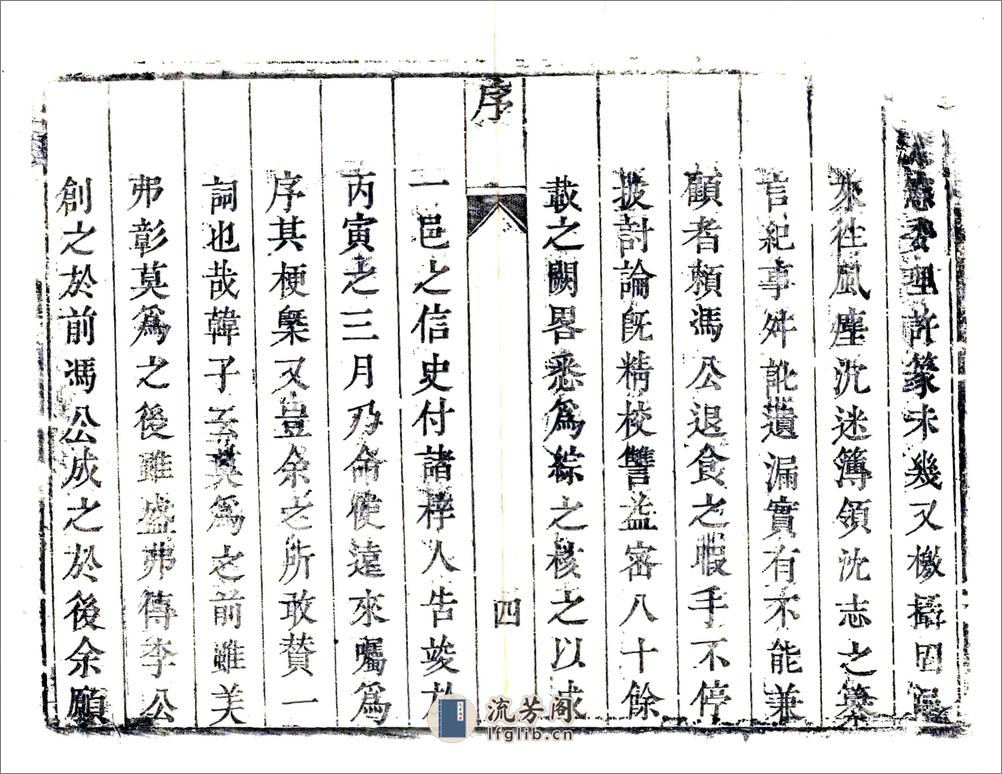 理許篆未幾又檄攝固
來往風塵沉迷簿領沈志之纂
言紀事舛訛遺漏實有不能兼
顧者頼馮公退食之暇手不停
披討論旣精校讐益密八十餘
載之闕畧悉爲綜之核之以成
序
四
一邑之信史付諸梓人告竣於
丙寅之三月乃侖使遠來囑爲
序其梗槩又豈余之所敢贊一
詞也哉韓子云莫爲之前雖美
弗彰莫爲之後雖盛弗傳李公
創之於前馮公成之於後余願
流芳阁
lfglib.cn